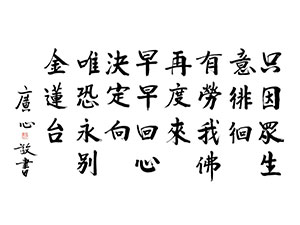 只因眾生
意徘徊
有勞我佛
再度來
早早回心
決定向
唯恐永别
金蓮台
廣心敬書